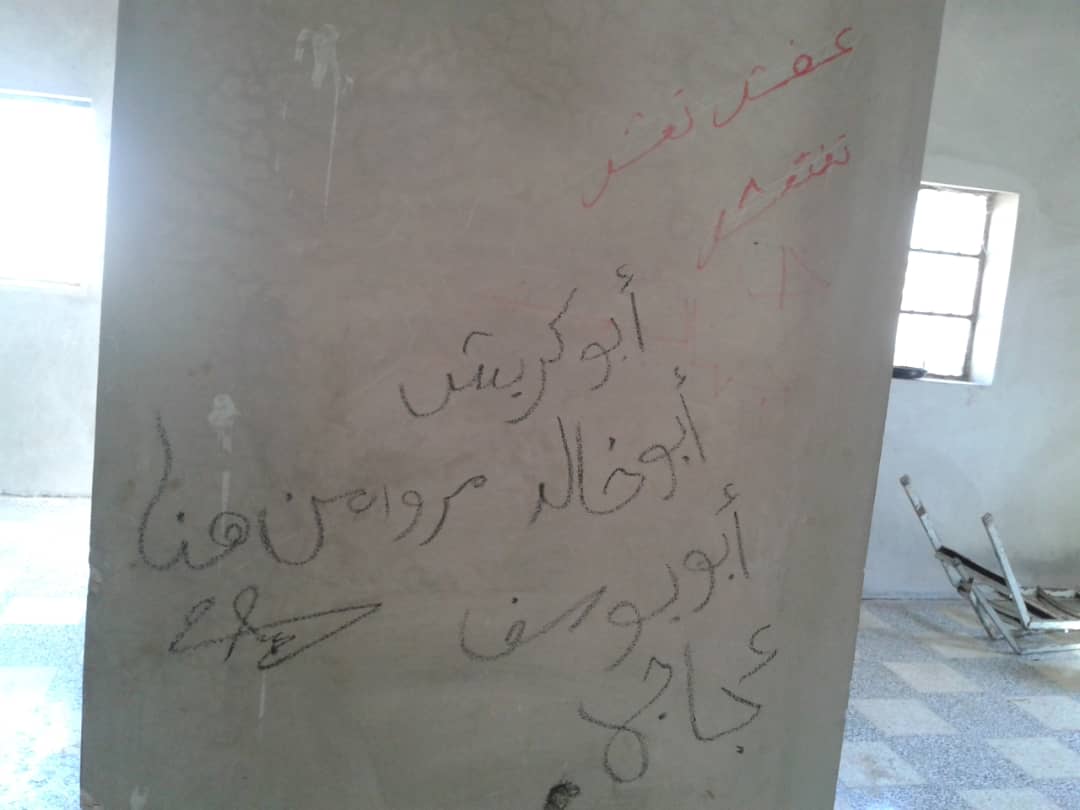 عفش نغش
نغنغش
أبو كريش
أبو خالد مروا من هنا
أبو يوسف
عجاجي